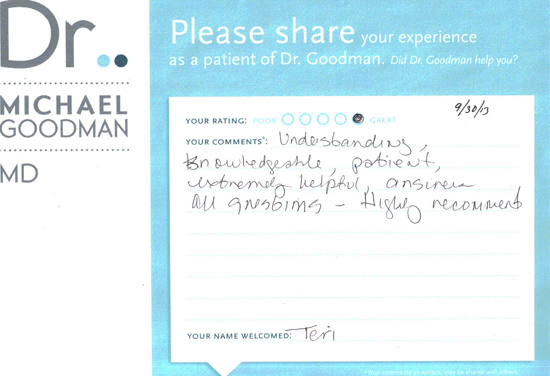 Dr..
MICHAEL
GOODMAN
MD
Please share your experience
as a patient of Dr. Goodman. Did Dr. Goodman help you?
9/30/13
YOUR RATING: POOR GREAT
YOUR COMMENTS*: Understanding,
knowledgeable, patient,
extremely helpful, answers
All questions - Highly recommend
YOUR NAME WELCOMED: Teri
*Your comments, as written, may be shared with others.